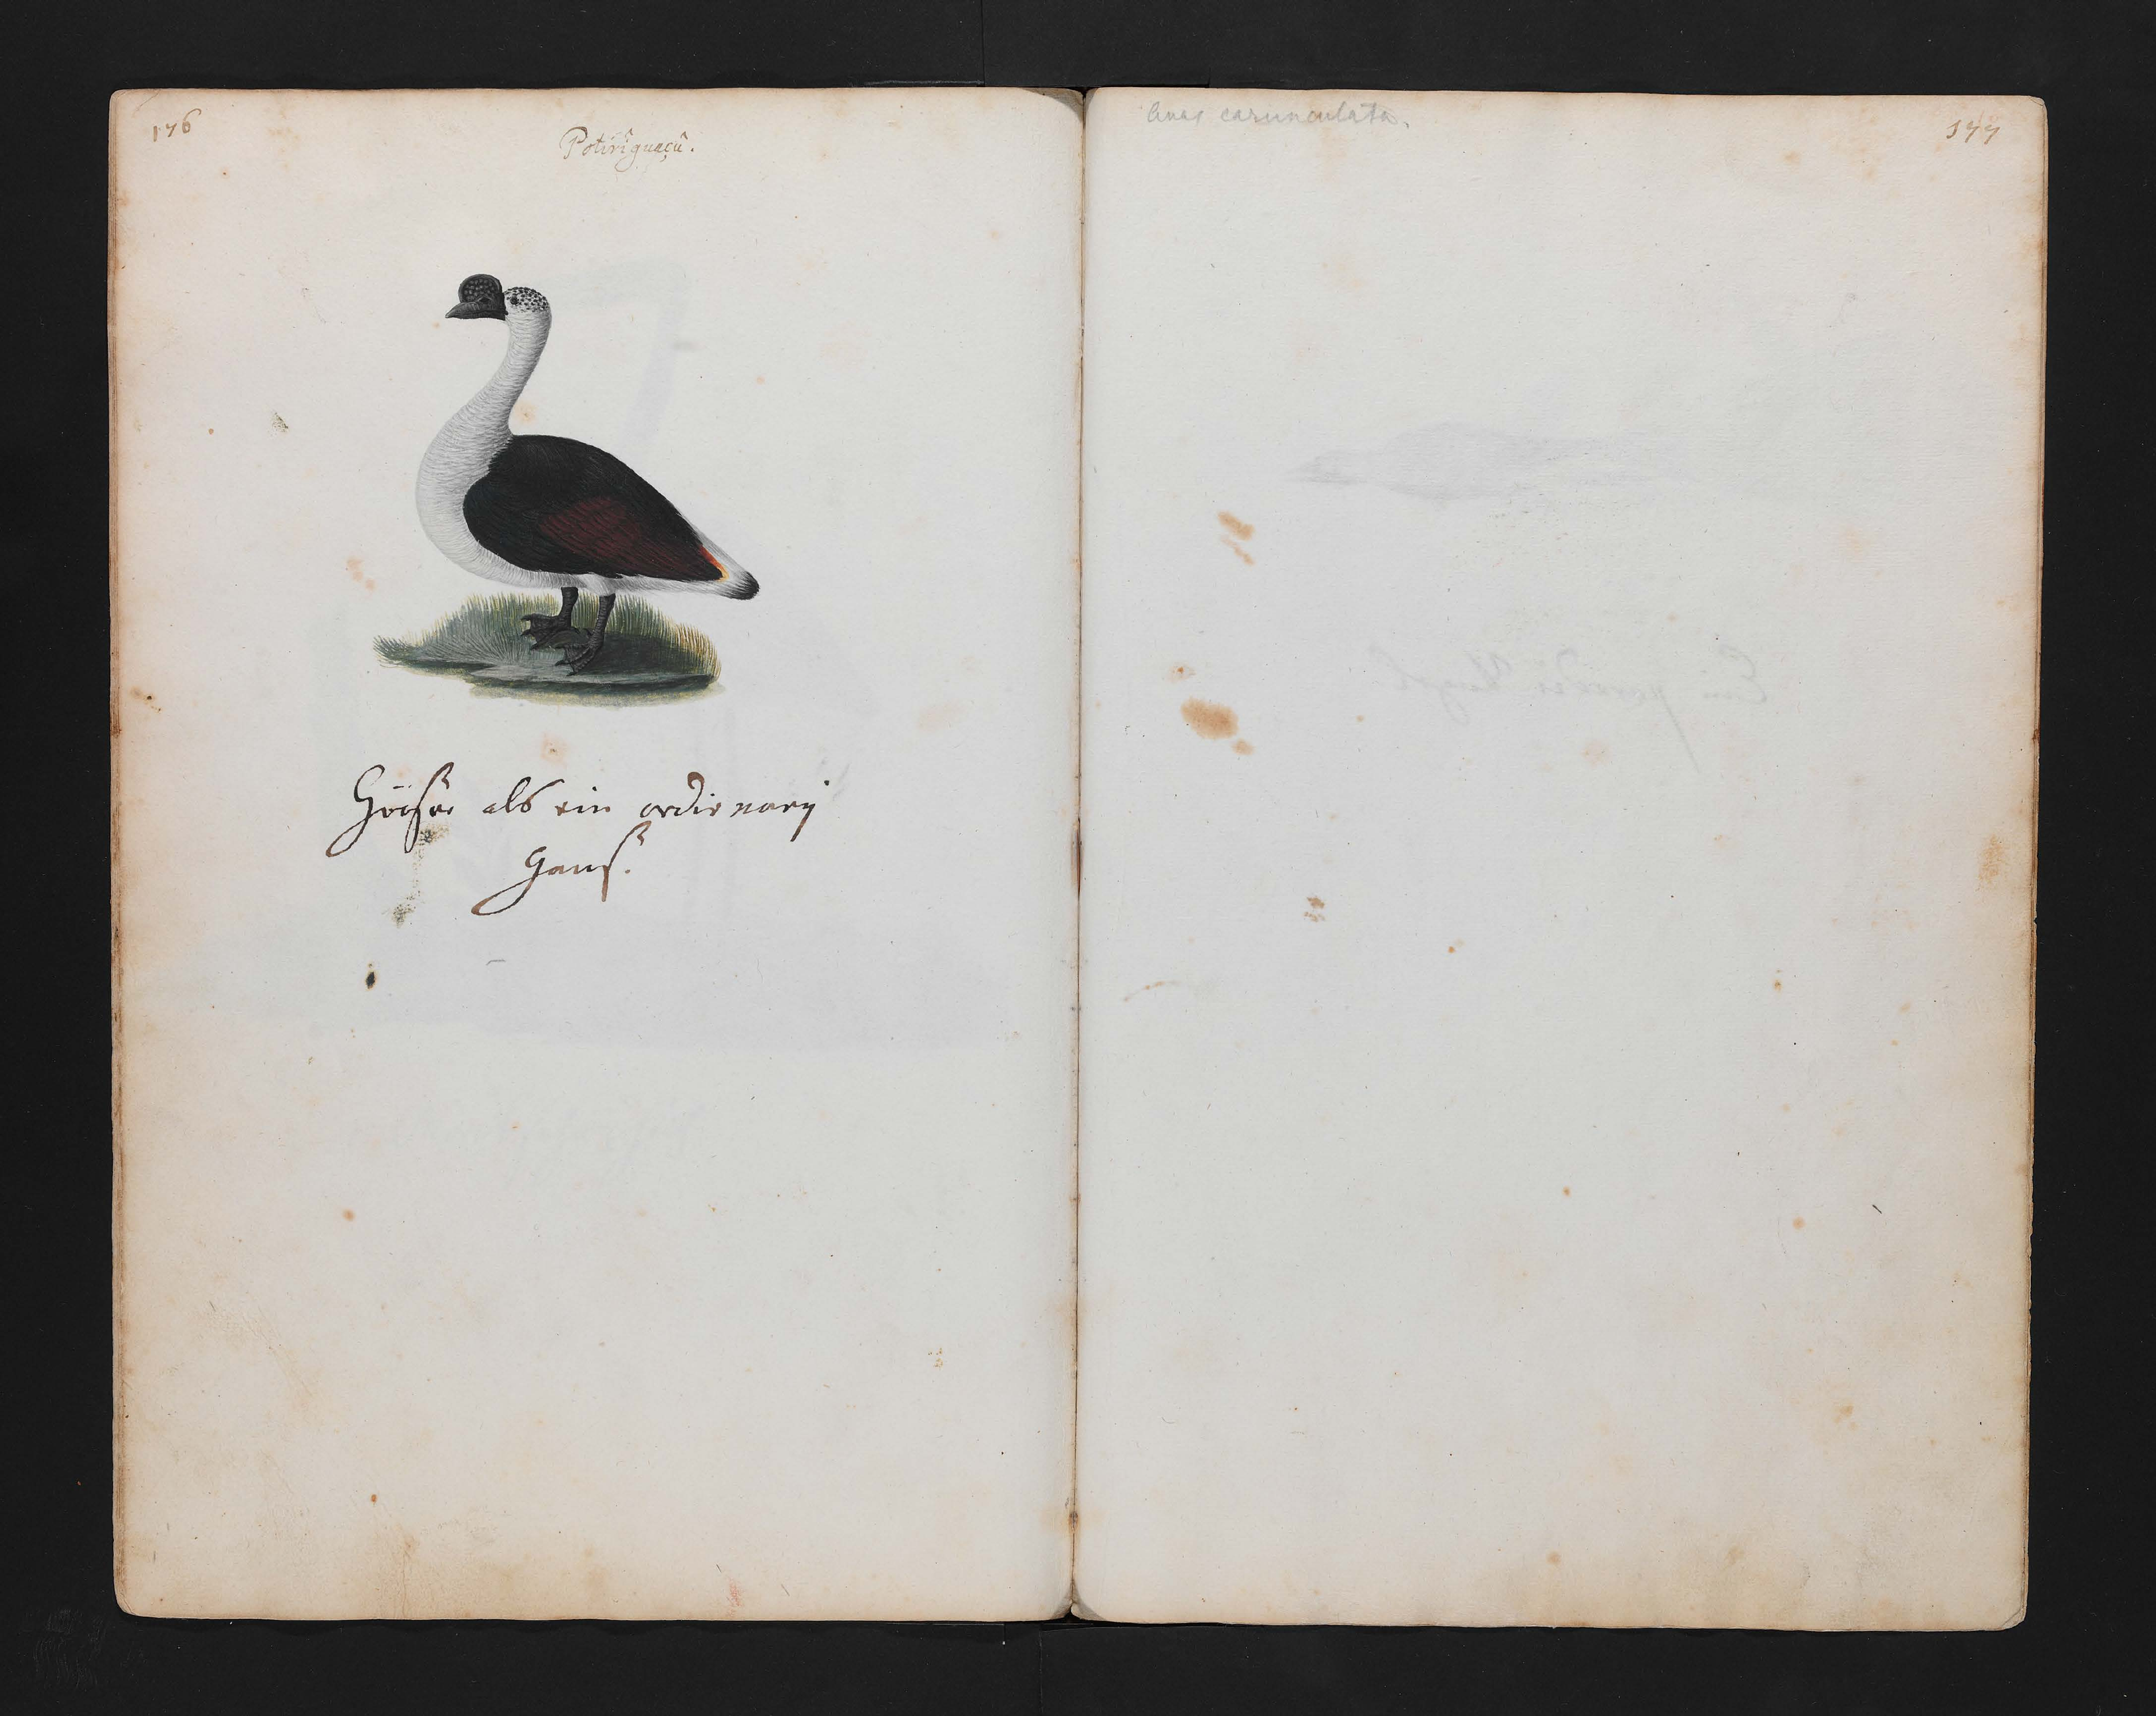 176
Potiriguaçû.
Gröser als ein ordinarij
Ganß.
Anas carunculata.
177